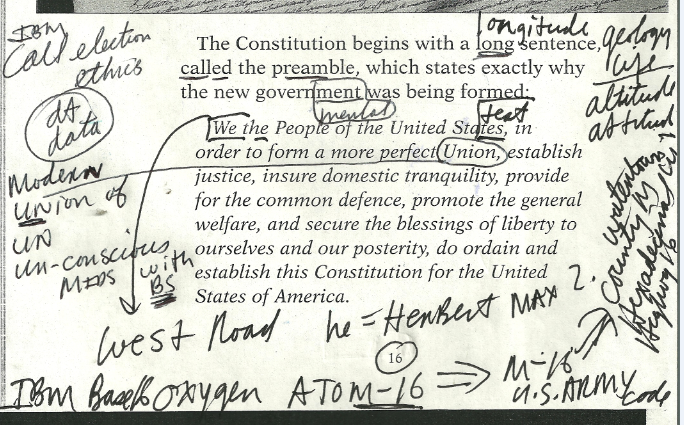 IBM
Call election
ethics
dt
data
Modern
UNion of
UN
un-conscious
MINDS
with
BS
longitude
The Constitution begins with a long sentence,
called the preamble, which states exactly why
the new government was being formed:
mental
test
We the People of the United States, in
order to form a more perfect Union, establish
justice, insure domestic tranquility, provide
for the common defence, promote the general
welfare, and secure the blessings of liberty to
ourselves and our posterity, do ordain and
establish this Constitution for the United
States of America.
geology
life
altitude
attitude
watertown
county NY
Hexadecimal
Highway 16
West Road
he = Herbert MAX 2.
16
IBM Base16 oxygen ATOM-16 ⇒ M-16
U.S. ARMY
code